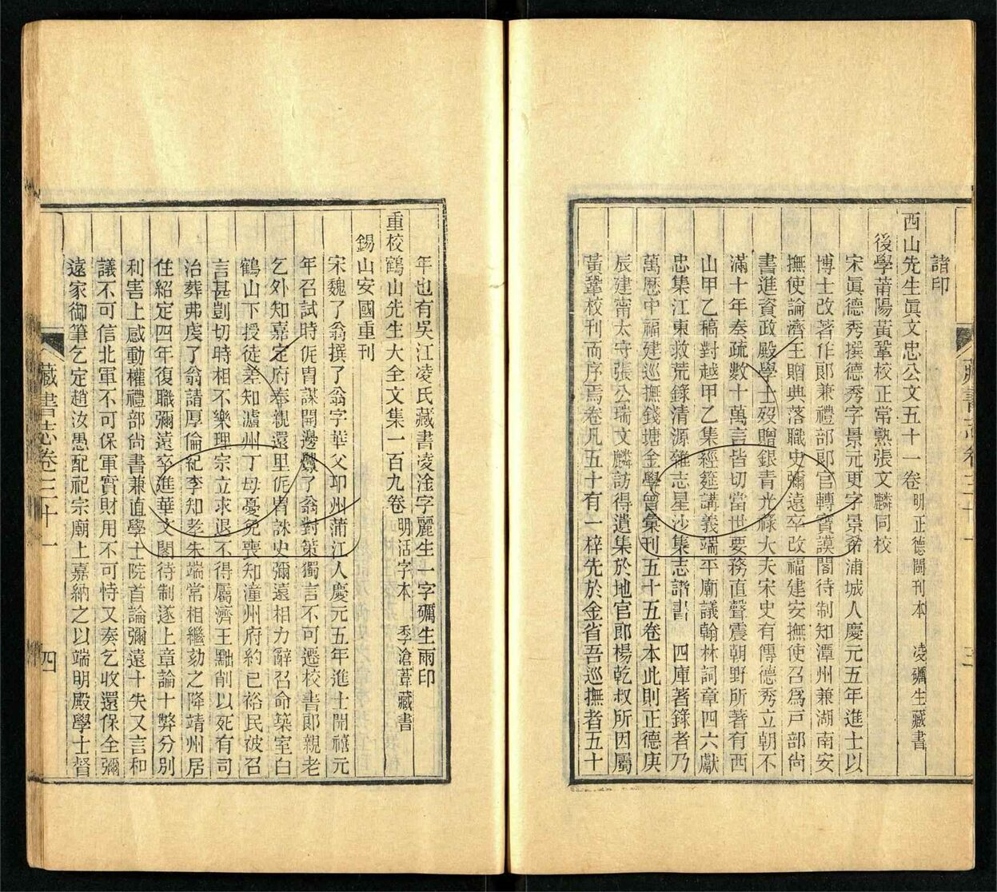 諸印
西山先生眞文忠公文五十一卷 明正德閩刊本 凌礪生藏書
後學莆陽黃鞏校正常熟張文麟同校
宋眞德秀撰德秀字景元更字景希浦城人慶元五年進士以
博士改著作郎兼禮部郎官轉寶謨閣待制知潭州兼湖南安
撫使論濟王贈典落職史彌遠卒改福建安撫使召爲戸部尙
書進資政殿學士歿贈銀靑光祿大夫宋史有傳德秀立朝不
滿十年奏疏數十萬言皆切當世要務直聲震朝野所著有西
山甲乙稿對越甲乙集經筵講義端平廟議翰林詞章四六獻
忠集江東救荒錄淸源雜志星沙集志諸書 四庫著錄者乃
萬歷中福建巡撫錢塘金學曾彙刊五十五卷本此則正德庚
辰建甯太守張公瑞文麟訪得遺集於地官郎楊乾叔所因屬
黃鞏校刊而序焉卷凡五十有一梓先於金省吾巡撫者五十
年也有吳江凌氏藏書凌淦字麗生一字礪生兩印
重校鶴山先生大全文集一百九卷 明活字本 季滄葦藏書
錫山安國重刊
宋魏了翁撰了翁字華父卭州蒲江人慶元五年進士開禧元
年召試時侂胄謀開邊釁了翁對策獨言不可遷校書郎親老
乞外知嘉定府奉親還里侂胄誅史彌遠相力辭召命築室白
鶴山下授徒差知瀘州丁母憂免喪知潼州府約已裕民被召
言甚剴切時相不樂理宗立求退不得屬濟王黜削以死有司
治葬弗虔了翁請厚倫紀李知孝朱端常相繼劾之降靖州居
住紹定四年復職彌遠卒進華文閣待制遂上章論十弊分別
利害上感動權禮部尙書兼直學士院首論彌遠十失又言和
議不可信北軍不可保軍實財用不可恃又奏乞收還保全彌
遠家御筆乞定趙汝愚配祀宗廟上嘉納之以端明殿學士督
藏書志卷三十一
四